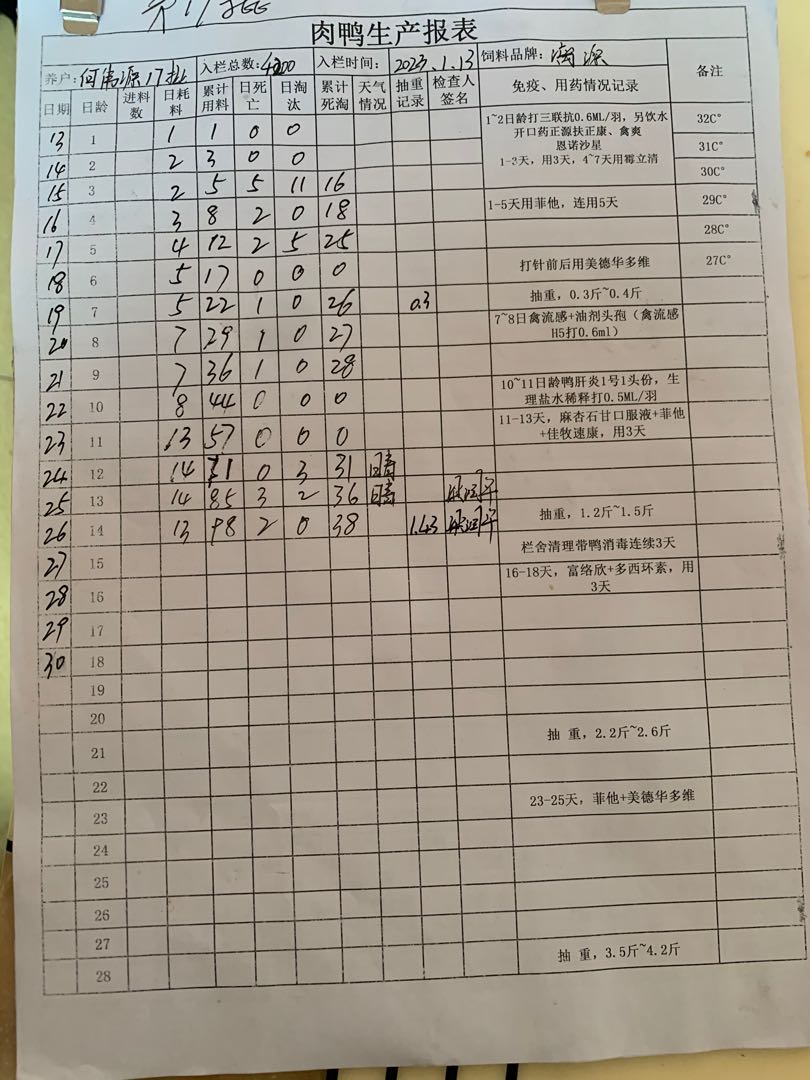 肉鸭生产报表
养户：何 源17批 入栏总数：4200 入栏时间：2023.1.13 饲料品牌： 源 备注
日期 日龄 进料数 日耗料 累计用料 日死亡 日淘汰 累计死淘 天气情况 抽重记录 检查人签名 免疫、用药情况记录
13 1 1 1 0 0 1~2日龄打三联抗0.6ML/羽，另饮水 32C°
开口药正源扶正康、禽爽
恩诺沙星
14 2 2 3 0 0 1-3天，用3天，4~7天用霉立清 31C°
30C°
15 3 2 5 5 11 16
16 4 3 8 2 0 18 1-5天用菲他，连用5天 29C°
17 5 4 12 2 5 25 28C°
18 6 5 17 0 0 0 打针前后用美德华多维 27C°
19 7 5 22 1 0 26 0.3 抽重，0.3斤~0.4斤
20 8 7 29 1 0 27 7~8日禽流感+油剂头孢（禽流感
H5打0.6ml）
21 9 7 36 1 0 28
22 10 8 44 0 0 0 10~11日龄鸭肝炎1号1头份，生
理盐水稀释打0.5ML/羽
23 11 13 57 0 0 0 11-13天，麻杏石甘口服液+菲他
+佳牧速康，用3天
24 12 14 71 0 3 31 晴
25 13 14 85 3 2 36 晴
26 14 13 98 2 0 38 1.43 抽重，1.2斤~1.5斤
27 15 栏舍清理带鸭消毒连续3天
28 16 16-18天，富络欣+多西环素，用
3天
29 17
30 18
19
20
21 抽 重，2.2斤~2.6斤
22
23 23-25天，菲他+美德华多维
24
25
26
27
28 抽 重，3.5斤~4.2斤